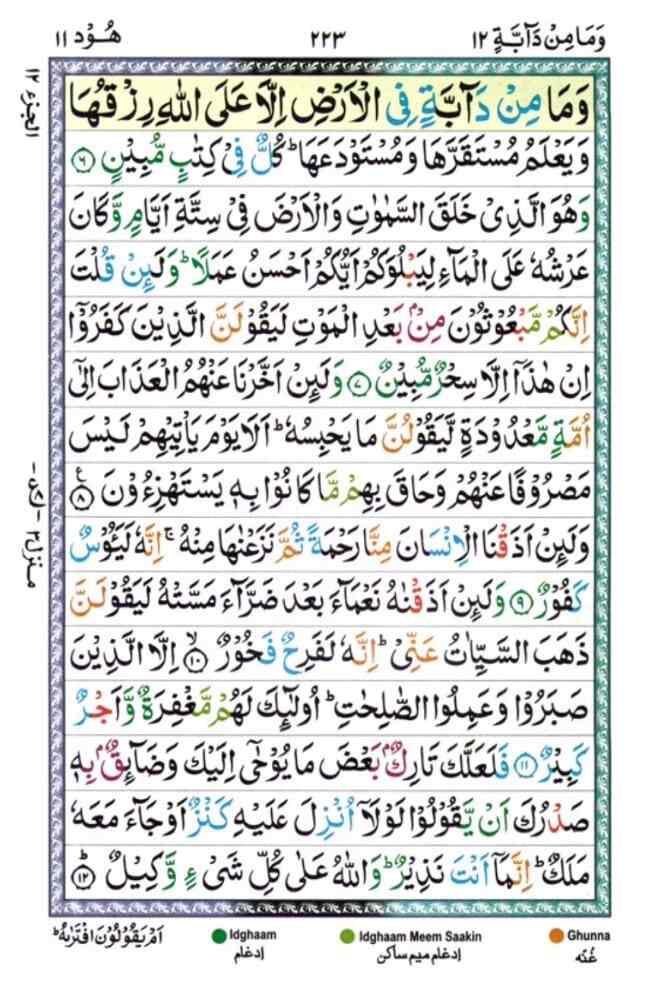 وَمَا مِنْ دَآبَّةٍ ١٢ ٢٢٣ هُوْد ١١
الجزء ١٢
وَمَا مِنْ دَآبَّةٍ فِى الْاَرْضِ اِلَّا عَلَى اللّٰهِ رِزْقُهَا
وَيَعْلَمُ مُسْتَقَرَّهَا وَمُسْتَوْدَعَهَا ؕ كُلٌّ فِىْ كِتٰبٍ مُّبِيْنٍ ۝٦
وَهُوَ الَّذِىْ خَلَقَ السَّمٰوٰتِ وَالْاَرْضَ فِىْ سِتَّةِ اَيَّامٍ وَّكَانَ
عَرْشُهٗ عَلَى الْمَآءِ لِيَبْلُوَكُمْ اَيُّكُمْ اَحْسَنُ عَمَلًا ؕ وَلَئِنْ قُلْتَ
اِنَّكُمْ مَّبْعُوْثُوْنَ مِنْۢ بَعْدِ الْمَوْتِ لَيَقُوْلَنَّ الَّذِيْنَ كَفَرُوْٓا
اِنْ هٰذَآ اِلَّا سِحْرٌ مُّبِيْنٌ ۝٧ وَلَئِنْ اَخَّرْنَا عَنْهُمُ الْعَذَابَ اِلٰٓى
اُمَّةٍ مَّعْدُوْدَةٍ لَّيَقُوْلُنَّ مَا يَحْبِسُهٗ ؕ اَلَا يَوْمَ يَاْتِيْهِمْ لَيْسَ
مَصْرُوْفًا عَنْهُمْ وَحَاقَ بِهِمْ مَّا كَانُوْا بِهٖ يَسْتَهْزِءُوْنَ ۝٨ ع
وَلَئِنْ اَذَقْنَا الْاِنْسَانَ مِنَّا رَحْمَةً ثُمَّ نَزَعْنٰهَا مِنْهُ ۚ اِنَّهٗ لَيَـُٔوْسٌ
كَفُوْرٌ ۝٩ وَلَئِنْ اَذَقْنٰهُ نَعْمَآءَ بَعْدَ ضَرَّآءَ مَسَّتْهُ لَيَقُوْلَنَّ
ذَهَبَ السَّيِّاٰتُ عَنِّىْ ؕ اِنَّهٗ لَفَرِحٌ فَخُوْرٌ ۙ۝١٠ اِلَّا الَّذِيْنَ
صَبَرُوْا وَعَمِلُوا الصّٰلِحٰتِ ؕ اُولٰٓئِكَ لَهُمْ مَّغْفِرَةٌ وَّاَجْرٌ
كَبِيْرٌ ۝١١ فَلَعَلَّكَ تَارِكٌۢ بَعْضَ مَا يُوْحٰٓى اِلَيْكَ وَضَآئِقٌۢ بِهٖ
صَدْرُكَ اَنْ يَّقُوْلُوْا لَوْلَآ اُنْزِلَ عَلَيْهِ كَنْزٌ اَوْ جَآءَ مَعَهٗ
مَلَكٌ ؕ اِنَّمَآ اَنْتَ نَذِيْرٌ ؕ وَاللّٰهُ عَلٰى كُلِّ شَىْءٍ وَّكِيْلٌ ؕ۝١٢
منزل ٣
اَمْ يَقُوْلُوْنَ افْتَرٰىهُ ؕ
Idghaam
ادغام
Idghaam Meem Saakin
ادغام میم ساکن
Ghunna
غُنّه